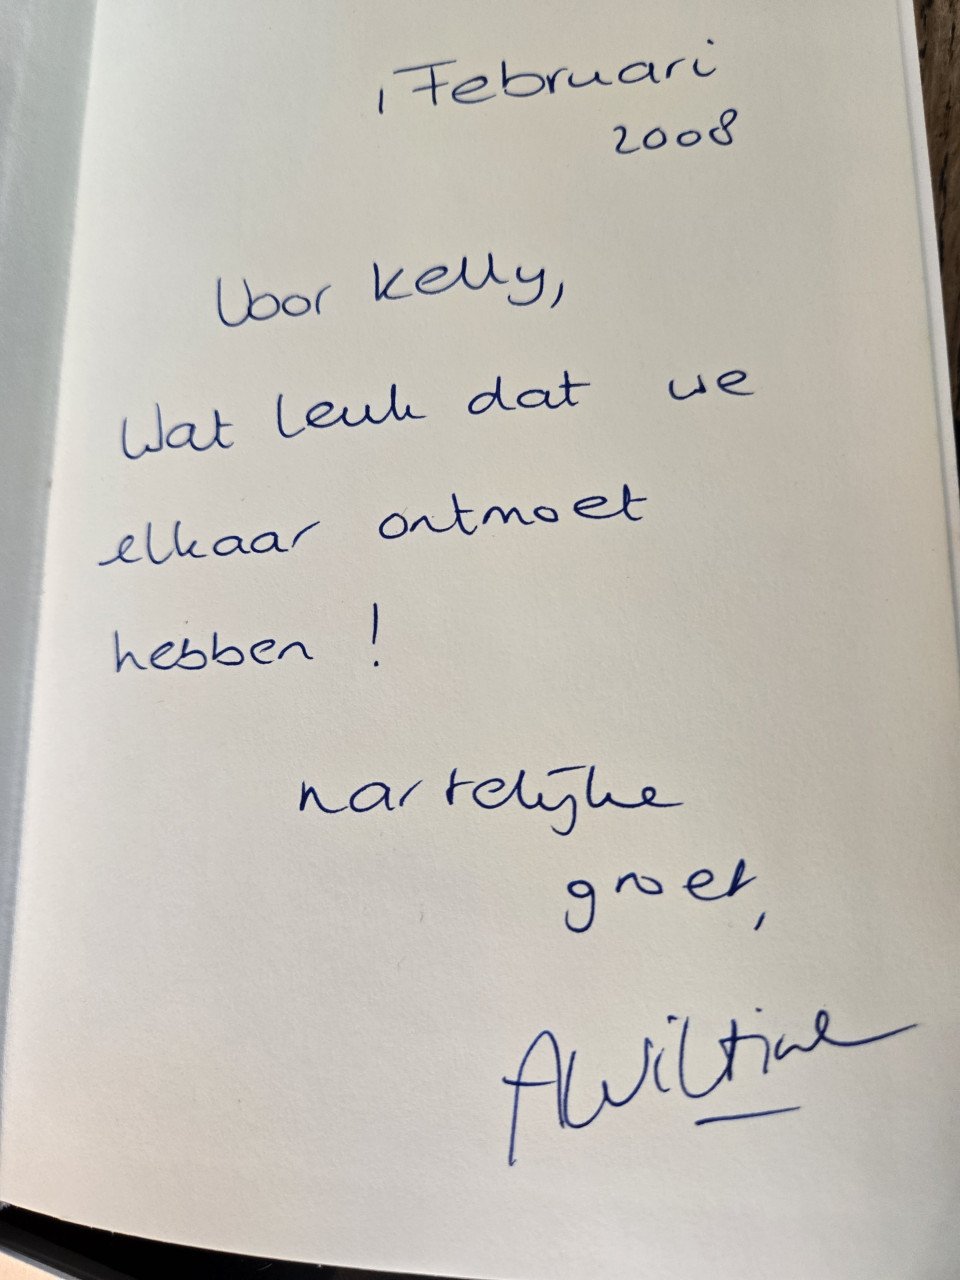 1 Februari
2008
Voor Kelly,
Wat leuk dat we
elkaar ontmoet
hebben !
hartelijke
groet,